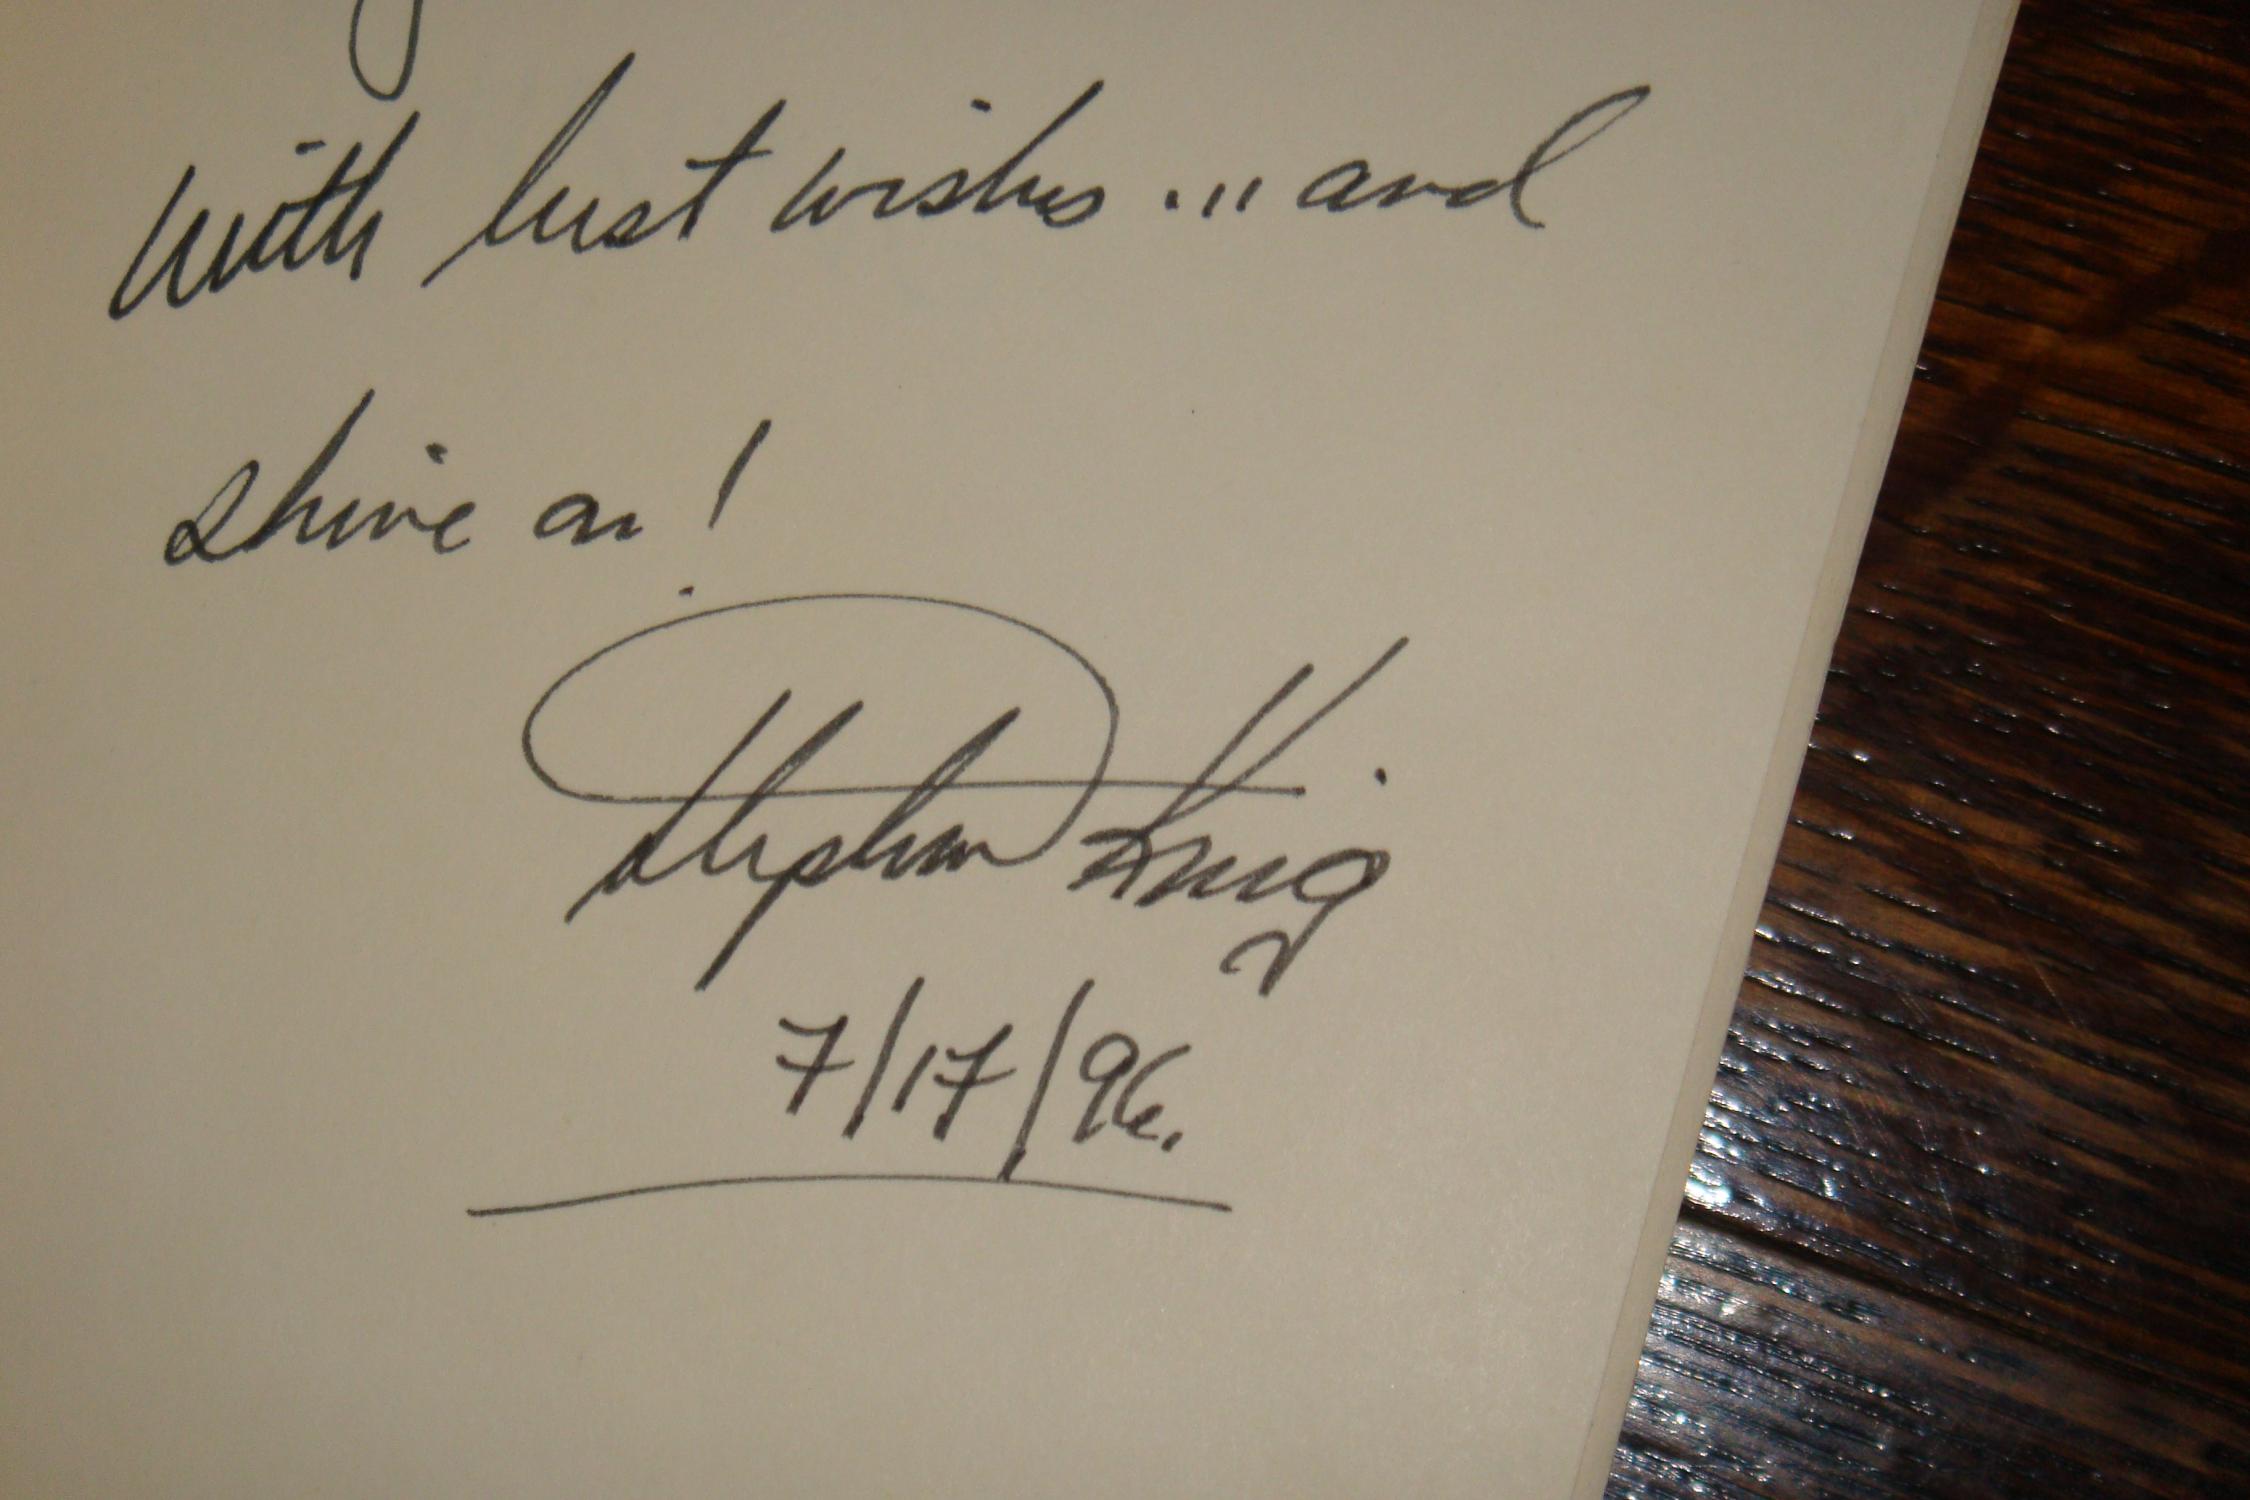 with best wishes... and
shine on!
Stephen King
7/17/96.